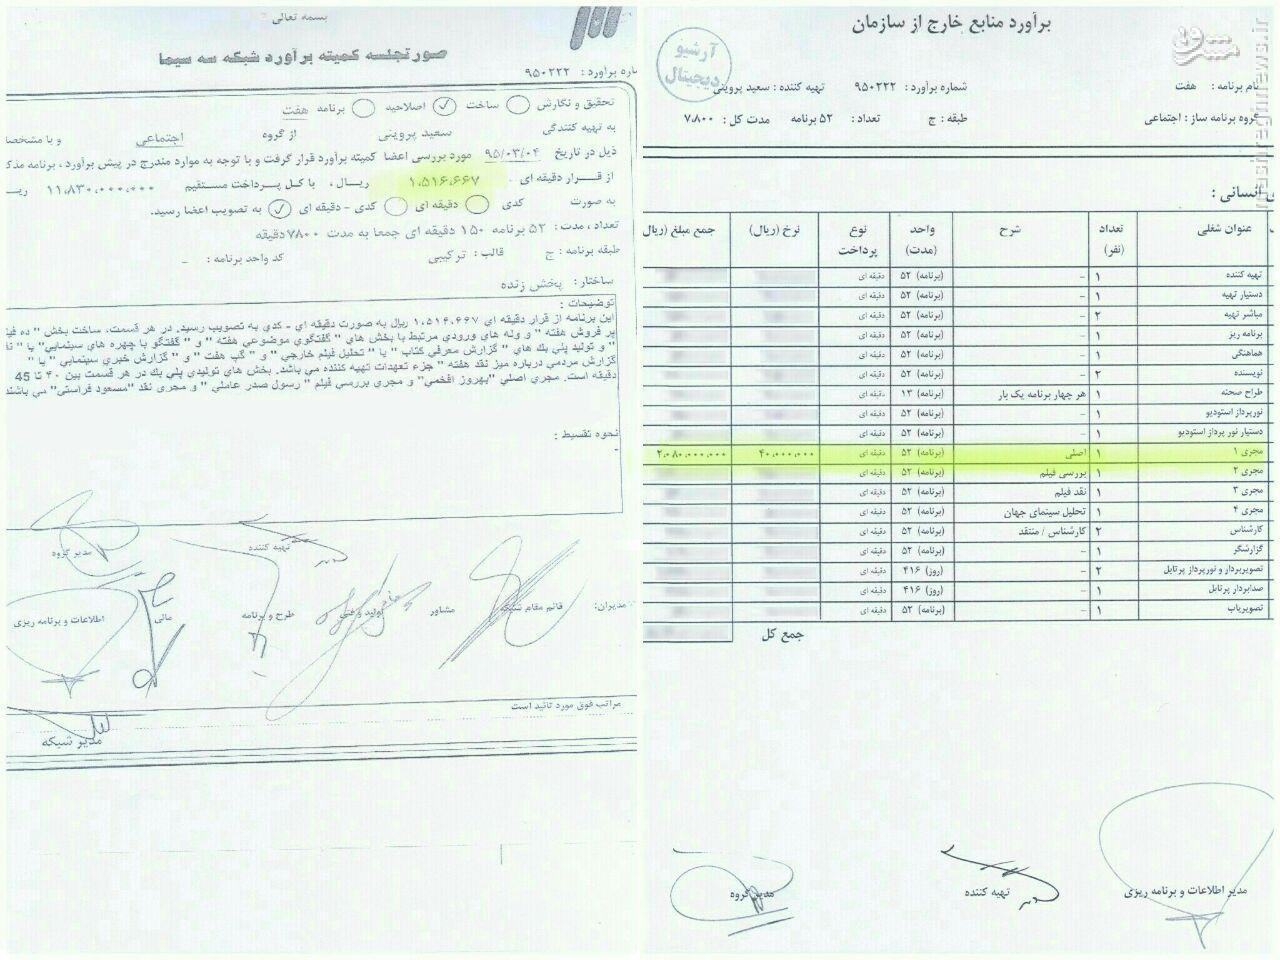 برآورد منابع خارج از سازمان
آرشیو
دیجیتال
mashreghnews.ir
نام برنامه : هفت
شماره برآورد : ۹۵۰۲۲۲
تهیه کننده : سعید پروینی
گروه برنامه ساز : اجتماعی
طبقه : ج
تعداد : ۵۲ برنامه
مدت کل : ۷،۸۰۰
انسانی :
عنوان شغلی تعداد (نفر) شرح واحد (مدت) نوع پرداخت نرخ (ریال) جمع مبلغ (ریال)
تهیه کننده ۱ – (برنامه) ۵۲ دقیقه ای
دستیار تهیه ۱ – (برنامه) ۵۲ دقیقه ای
مباشر تهیه ۲ – (برنامه) ۵۲ دقیقه ای
برنامه ریز ۱ – (برنامه) ۵۲ دقیقه ای
هماهنگی ۱ – (برنامه) ۵۲ دقیقه ای
نویسنده ۲ – (برنامه) ۵۲ دقیقه ای
طراح صحنه ۱ هر چهار برنامه یک بار (برنامه) ۱۳ دقیقه ای
نورپرداز استودیو ۱ – (برنامه) ۵۲ دقیقه ای
دستیار نور پرداز استودیو ۱ – (برنامه) ۵۲ دقیقه ای
مجری ۱ ۱ اصلی (برنامه) ۵۲ دقیقه ای ۴۰،۰۰۰،۰۰۰ ۲،۰۸۰،۰۰۰،۰۰۰
مجری ۲ ۱ بررسی فیلم (برنامه) ۵۲ دقیقه ای
مجری ۳ ۱ نقد فیلم (برنامه) ۵۲ دقیقه ای
مجری ۴ ۱ تحلیل سینمای جهان (برنامه) ۵۲ دقیقه ای
کارشناس ۲ کارشناس / منتقد (برنامه) ۵۲ دقیقه ای
گزارشگر ۱ – (برنامه) ۵۲ دقیقه ای
تصویربردار و نورپرداز پرتابل ۲ – (روز) ۴۱۶ دقیقه ای
صدابردار پرتابل ۱ – (روز) ۴۱۶ دقیقه ای
تصویریاب ۱ – (برنامه) ۵۲ دقیقه ای
جمع کل
مدیر اطلاعات و برنامه ریزی
تهیه کننده
مدیر گروه
بسمه تعالی
صورتجلسه کمیته برآورد شبکه سه سیما
شماره برآورد : ۹۵۰۲۲۲
تحقیق و نگارش ساخت اصلاحیه برنامه هفت
به تهیه کنندگی سعید پروینی از گروه اجتماعی و با مشخصات
ذیل در تاریخ ۹۵/۰۳/۰۴ مورد بررسی اعضا کمیته برآورد قرار گرفت و با توجه به موارد مندرج در پیش برآورد ، برنامه
از قرار دقیقه ای ۱،۵۱۶،۶۶۷ ریال ، با کل پرداخت مستقیم ۱۱،۸۳۰،۰۰۰،۰۰۰
به صورت کدی دقیقه ای کدی - دقیقه ای به تصویب اعضا رسید.
تعداد ، مدت : ۵۲ برنامه ۱۵۰ دقیقه ای جمعا به مدت ۷۸۰۰ دقیقه
طبقه برنامه : ج قالب : ترکیبی کد واحد برنامه : –
ساختار : پخش زنده
توضیحات :
این برنامه از قرار دقیقه ای ۱،۵۱۶،۶۶۷ ریال به صورت دقیقه ای - کدی به تصویب رسید. در هر قسمت، ساخت بخش " ده
پر فروش هفته " و وله های ورودی مرتبط با بخش های " گفتگوی موضوعی هفته " و " گفتگو با چهره های سینمایی" یا
" و تولید پلی بك های " گزارش معرفی کتاب " یا " تحلیل فیلم خارجی " و " گپ هفت " و " گزارش خبری سینمایی " یا "
گزارش مردمی درباره میز نقد هفته " جزء تعهدات تهیه کننده می باشد. بخش های تولیدی پلی بك در هر قسمت بین ۴۰ تا 45
دقیقه است. مجری اصلی "بهروز افخمی" و مجری بررسی فیلم " رسول صدر عاملی " و مجری نقد "مسعود فراستی" می باشند
نحوه تقسیط :
-
مدیر گروه
تهیه کننده
مدیران:
قائم مقام شبکه
مشاور
تولید و فنی
طرح و برنامه
مالی
اطلاعات و برنامه ریزی
مراتب فوق مورد تائید است
مدیر شبکه